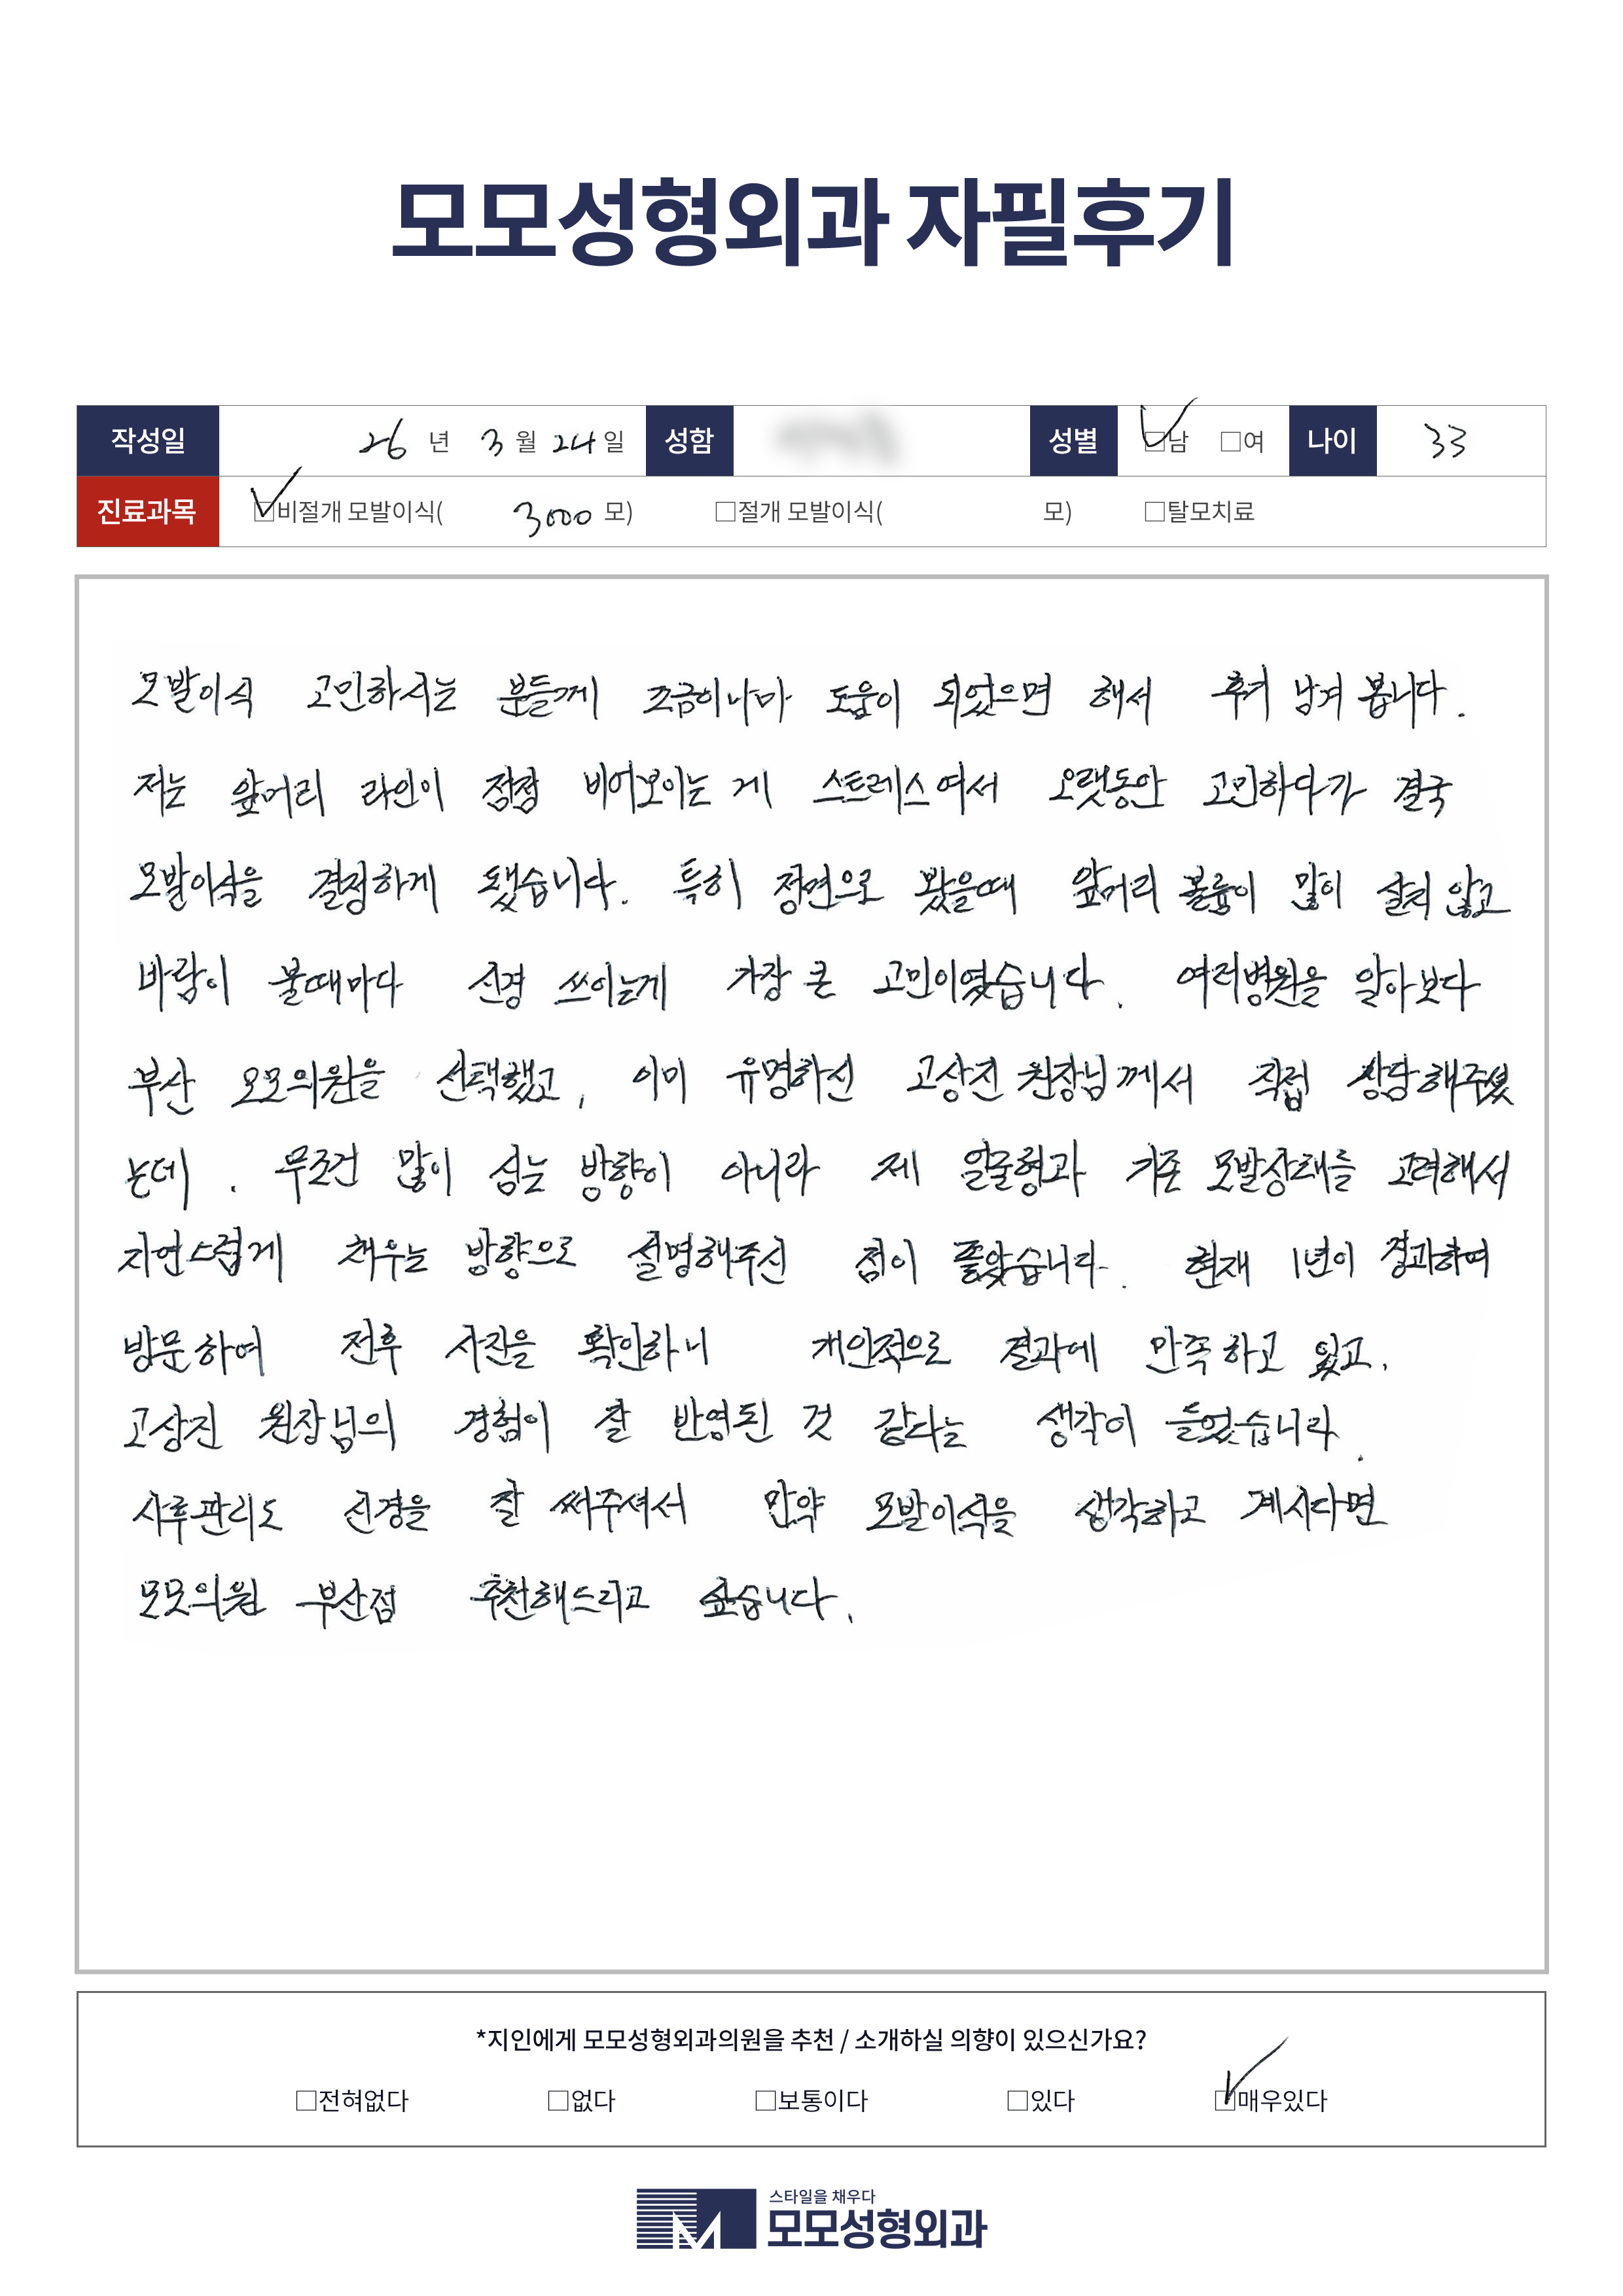 모모성형외과 자필후기
작성일 26 년 3 월 24 일 성함 성별 □남 □여 나이 33
진료과목 □비절개 모발이식( 3000 모) □절개 모발이식( 모) □탈모치료
모발이식 고민하시는 분들께 조금이나마 도움이 되었으면 해서 후기 남겨 봅니다.
저는 앞머리 라인이 점점 비어보이는 게 스트레스여서 오랫동안 고민하다가 결국
모발이식을 결정하게 됐습니다. 특히 정면으로 봤을때 앞머리 볼륨이 많이 살지 않고
바람이 불때마다 신경 쓰이는게 가장 큰 고민이였습니다. 여러병원을 알아보다
부산 모모의원을 선택했고, 이미 유명하신 고상진 원장님께서 직접 상담해주셨
는데. 무조건 많이 심는 방향이 아니라 제 얼굴형과 기존 모발상태를 고려해서
자연스럽게 채우는 방향으로 설명해주신 점이 좋았습니다. 현재 1년이 경과하여
방문하여 전후 사진을 확인하니 개인적으로 결과에 만족하고 있고,
고상진 원장님의 경험이 잘 반영된 것 같다는 생각이 들었습니다.
사후관리도 신경을 잘 써주셔서 만약 모발이식을 생각하고 계시다면
모모의원 부산점 추천해드리고 싶습니다.
*지인에게 모모성형외과의원을 추천 / 소개하실 의향이 있으신가요?
□전혀없다 □없다 □보통이다 □있다 □매우있다
스타일을 채우다
모모성형외과